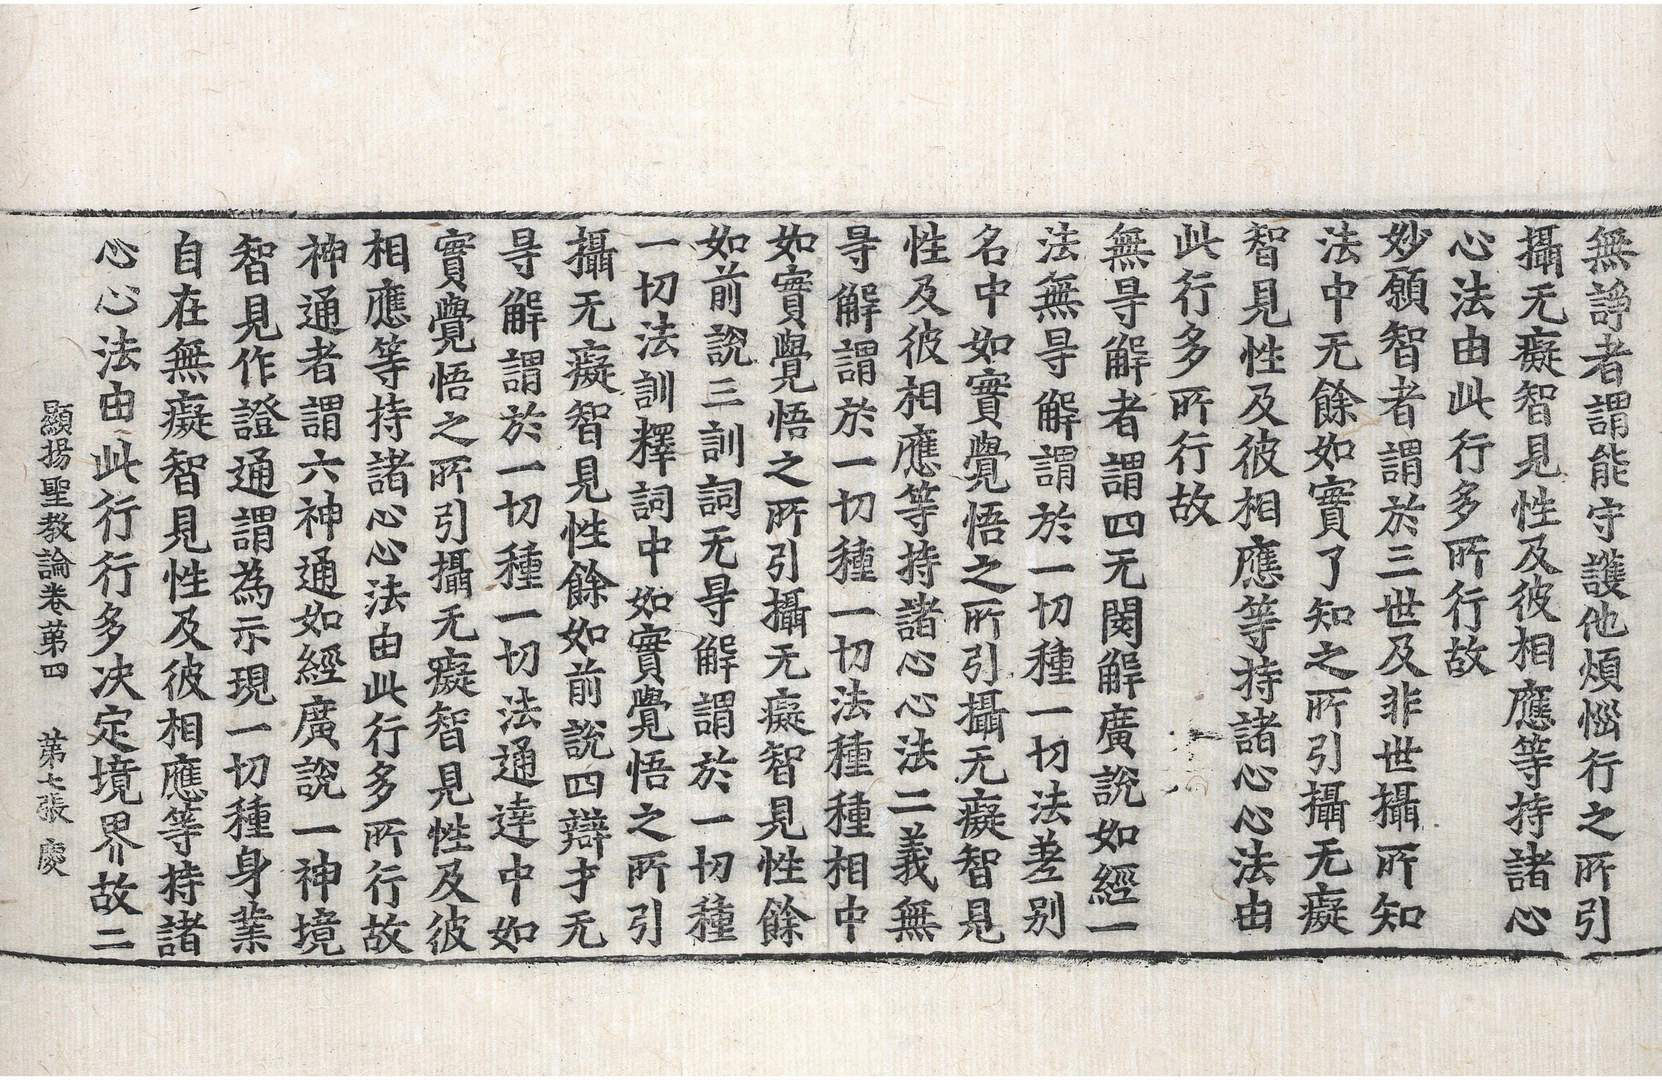 無諍者謂能守護他煩惱行之所引
攝无癡智見性及彼相應等持諸心
心法由此行多所行故
妙願智者謂於三世及非世攝所知
法中无餘如實了知之所引攝无癡
智見性及彼相應等持諸心心法由
此行多所行故
無㝵解者謂四无閡解廣說如經一
法無㝵解謂於一切種一切法差别
名中如實覺悟之所引攝无癡智見
性及彼相應等持諸心心法二義無
㝵解謂於一切種一切法種種相中
如實覺悟之所引攝无癡智見性餘
如前說三訓詞无㝵解謂於一切種
一切法訓釋詞中如實覺悟之所引
攝无癡智見性餘如前說四辯才无
㝵解謂於一切種一切法通達中如
實覺悟之所引攝无癡智見性及彼
相應等持諸心心法由此行多所行故
神通者謂六神通如經廣說一神境
智見作證通謂為示現一切種身業
自在無癡智見性及彼相應等持諸
心心法由此行行多决定境界故二
顯揚聖教論卷苐四 苐七張 慶